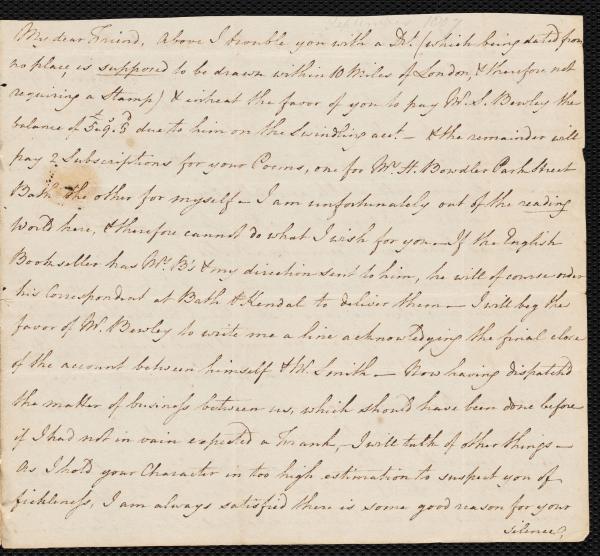 My dear Friend, Above I trouble you with a Dft. (which being dated from
no place, is supposed to be drawn within 10 Miles of London, & therefore not
requiring a Stamp) & intreat the favor of you to pay W. S. Bewley the
balance of 5£.9s.5d due to him on the Swindling acct.— & the remainder will
pay 2 Subscriptions for your Poems, one for Mrs. H. Bowdler Park Street
Bath the other for myself — I am unfortunately out of the reading
World here, & therefore cannot do what I wish for you.— If the English
Bookseller has Mrs. B's & my direction sent to him, he will of course order
his Correspondent at Bath & Kendal to deliver them — I will beg the
favor of W. Bewley to write me a line acknowledging the final close
of the account between himself & W. Smith — Now having dispatch'd
the matter of business between us, which should have been done before
if I had not in vain expected a Frank,— I will talk of other things —
As I hold your Character in too high estimation to suspect you of
fickleness, I am always satisfied there is some good reason for your
silence,